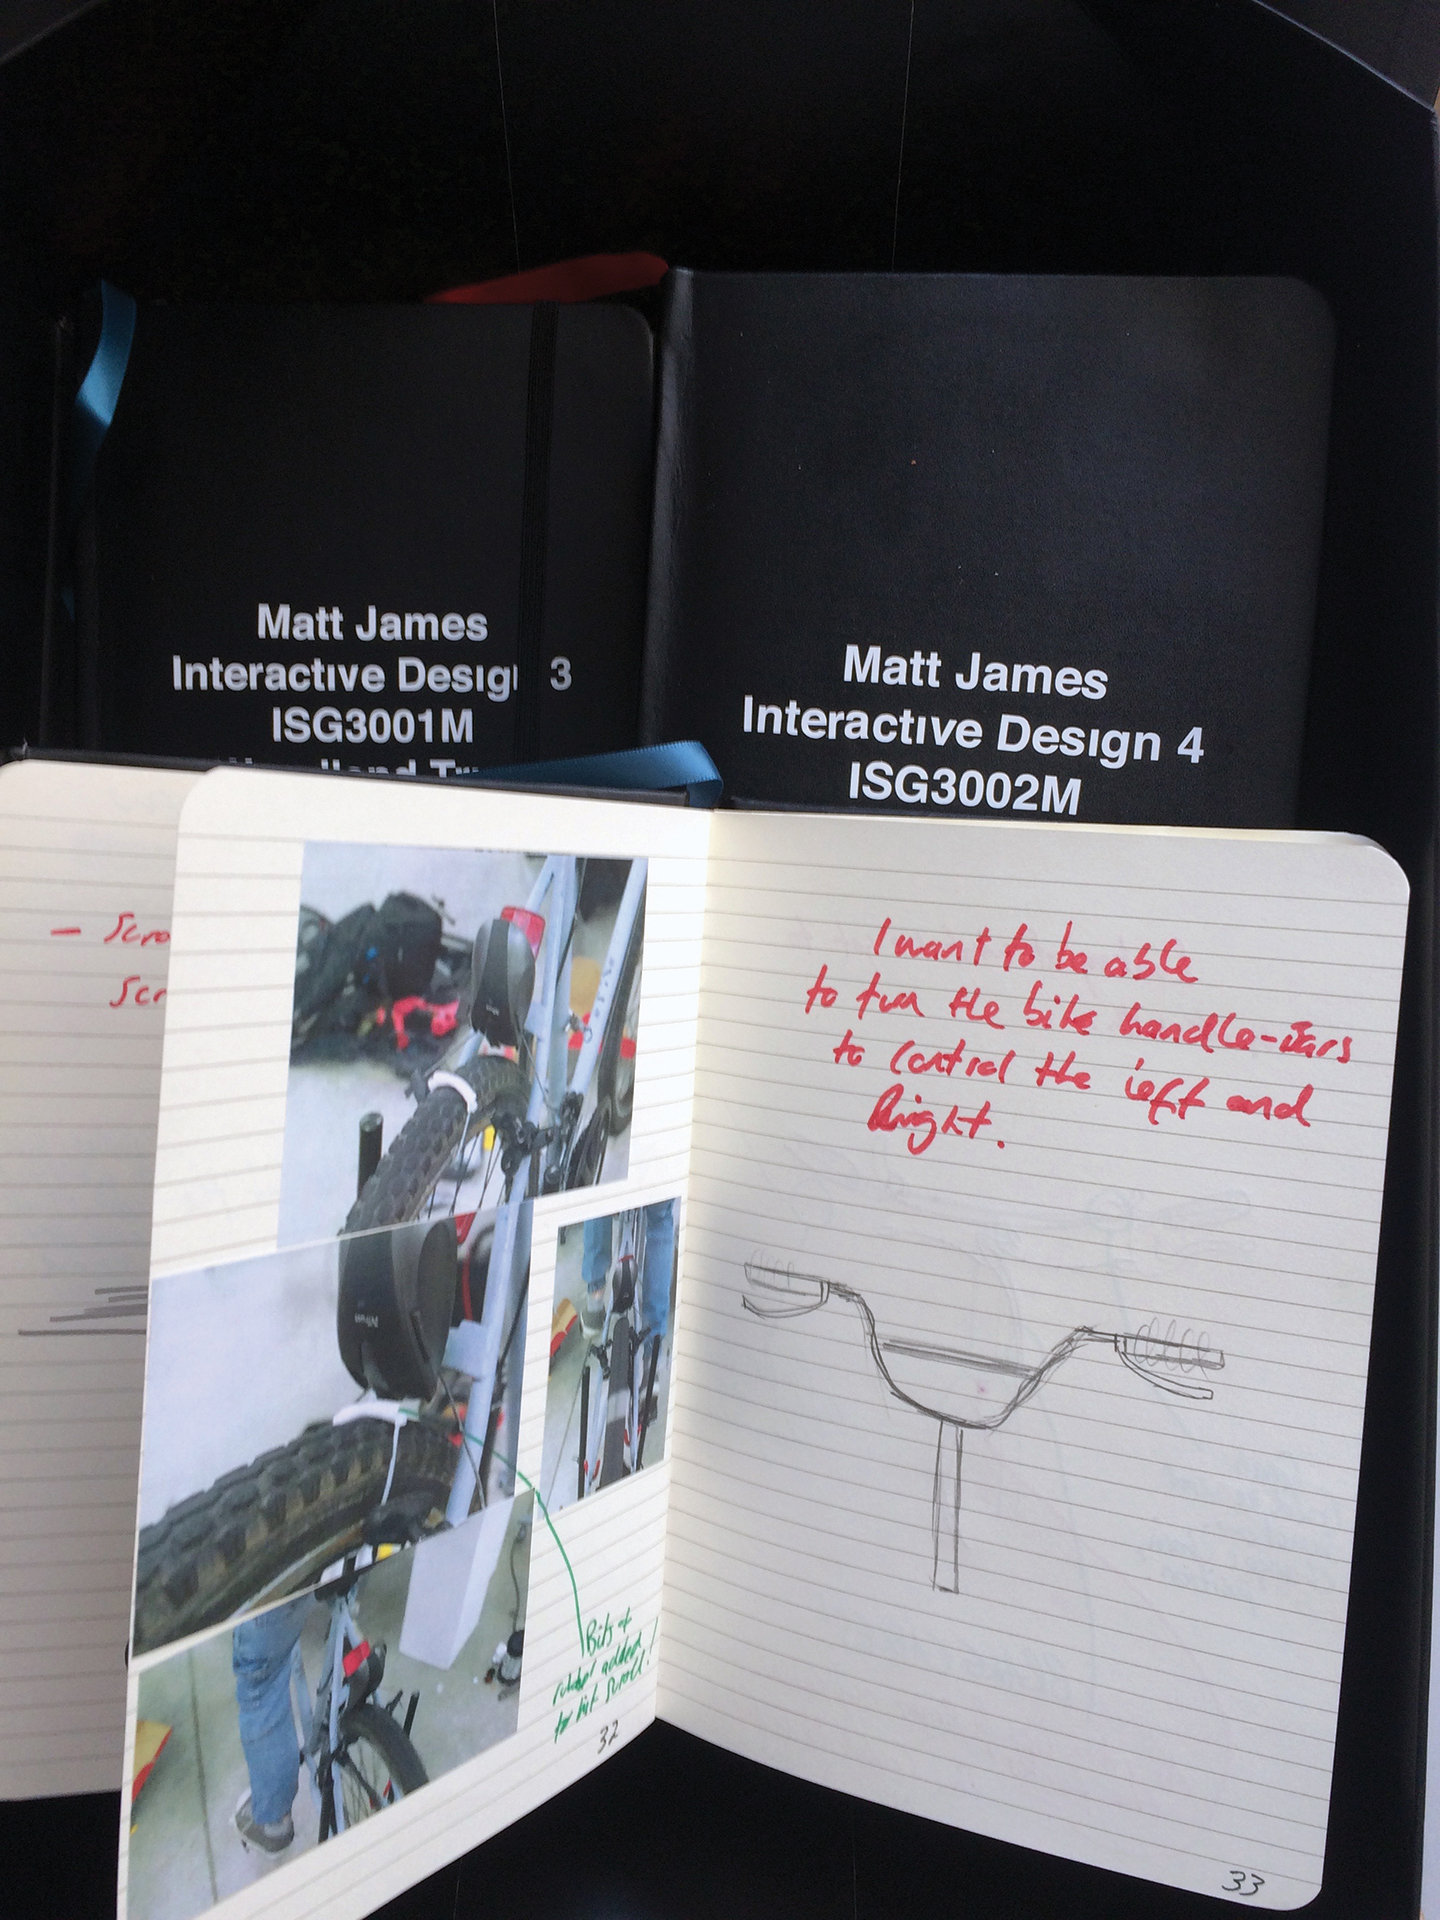 Matt James
Interactive Design 3
ISG3001M
Matt James
Interactive Design 4
ISG3002M
- Scro
Scr
Trust
Bits of
rubber added
to hit scroll!
32
I want to be able
to turn the bike handle-bars
to control the left and
Right.
33